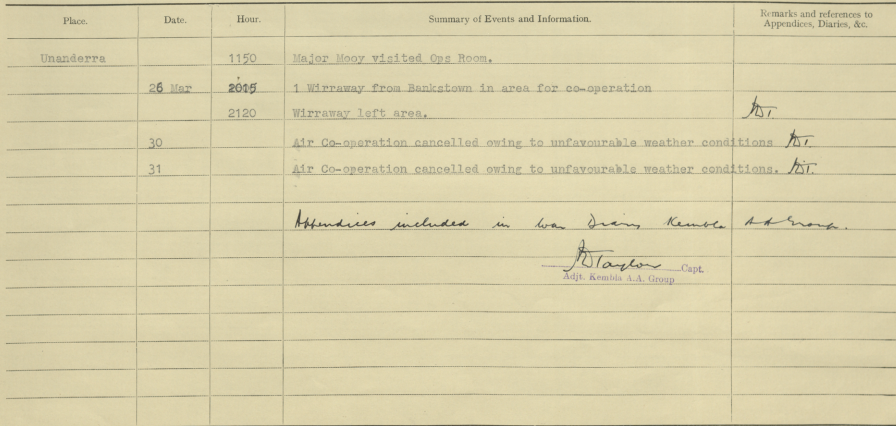 Place. Date. Hour. Summary of Events and Information. Remarks and references to Appendices, Diaries, &c.
Unanderra 1150 Major Mooy visited Ops Room.
26 Mar 2015 1 Wirraway from Bankstown in area for co-operation
2120 Wirraway left area.
30 Air Co-operation cancelled owing to unfavourable weather conditions
31 Air Co-operation cancelled owing to unfavourable weather conditions.
Appendices included in War Diary Kembla A A Group.
Taylor Capt.
Adjt. Kembla A.A. Group